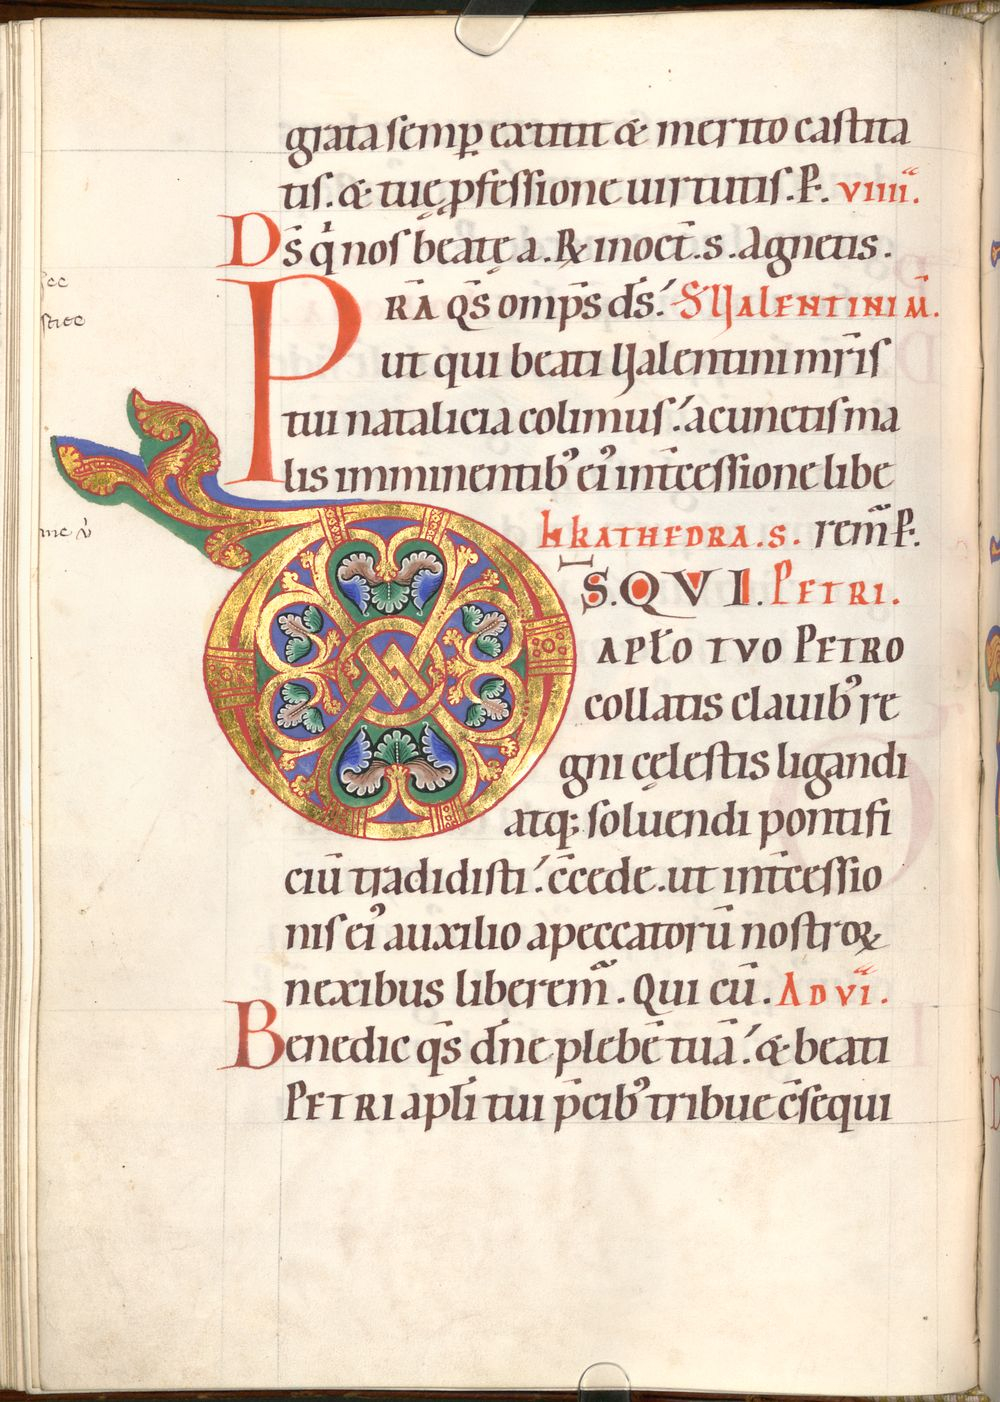 grata semp̲ extitit & merito castita
tis. & tuę p̲fessione uirtutis. P̲. VIIII.
D̅s q̇ nos beatę a. R̲ in oct̅. s. Agnetis.
P R̅A Q̅S omp̅s d̅s. S̅ VALENTINI M̅.
ut qui beati Valentini mr̅is
tui natalicia colimus. a cunctis ma
lis imminentib' ei' int̅cessione libe
KATHEDRA. S. rem̅ P̅.
D S. QVI. PETRI.
APŁO TVO PETRO
collatis clauib' re
gni cęlestis ligandi
atq; soluendi pontifi
ciu̅ tradidisti. c̅cede. ut int̅cessio
nis ei' auxilio a peccatoru̅ nostroꝝ
nexibus liberem̅. Qui cu̅. AD VI̅.
Benedic q̅s dn̅e plebe̅ tua̅. & beati
PETRI apl̅i tui p̅cib' tribue c̅sequi